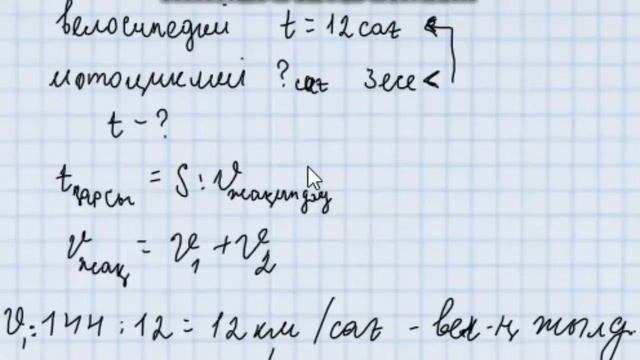 велосипедши t = 12 сағ
мотоциклші ? сағ 3 есе <
t - ?
t қарсы = S : v жақындау
v жақ = v₁ + v₂
v₁ : 144 : 12 = 12 км / сағ - вел-ң жылд.